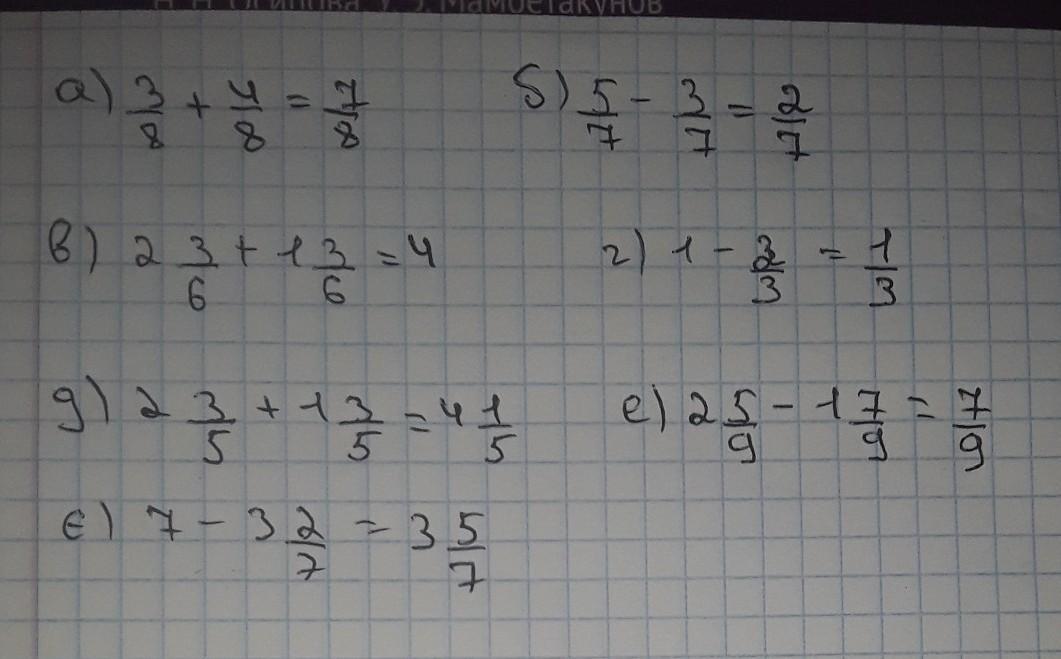 Мамбетакунов
а) 3/8 + 4/8 = 7/8 б) 5/7 - 3/7 = 2/7
в) 2 3/6 + 1 3/6 = 4 г) 1 - 2/3 = 1/3
д) 2 3/5 + 1 3/5 = 4 1/5 е) 2 5/9 - 1 7/9 = 7/9
є) 7 - 3 2/7 = 3 5/7